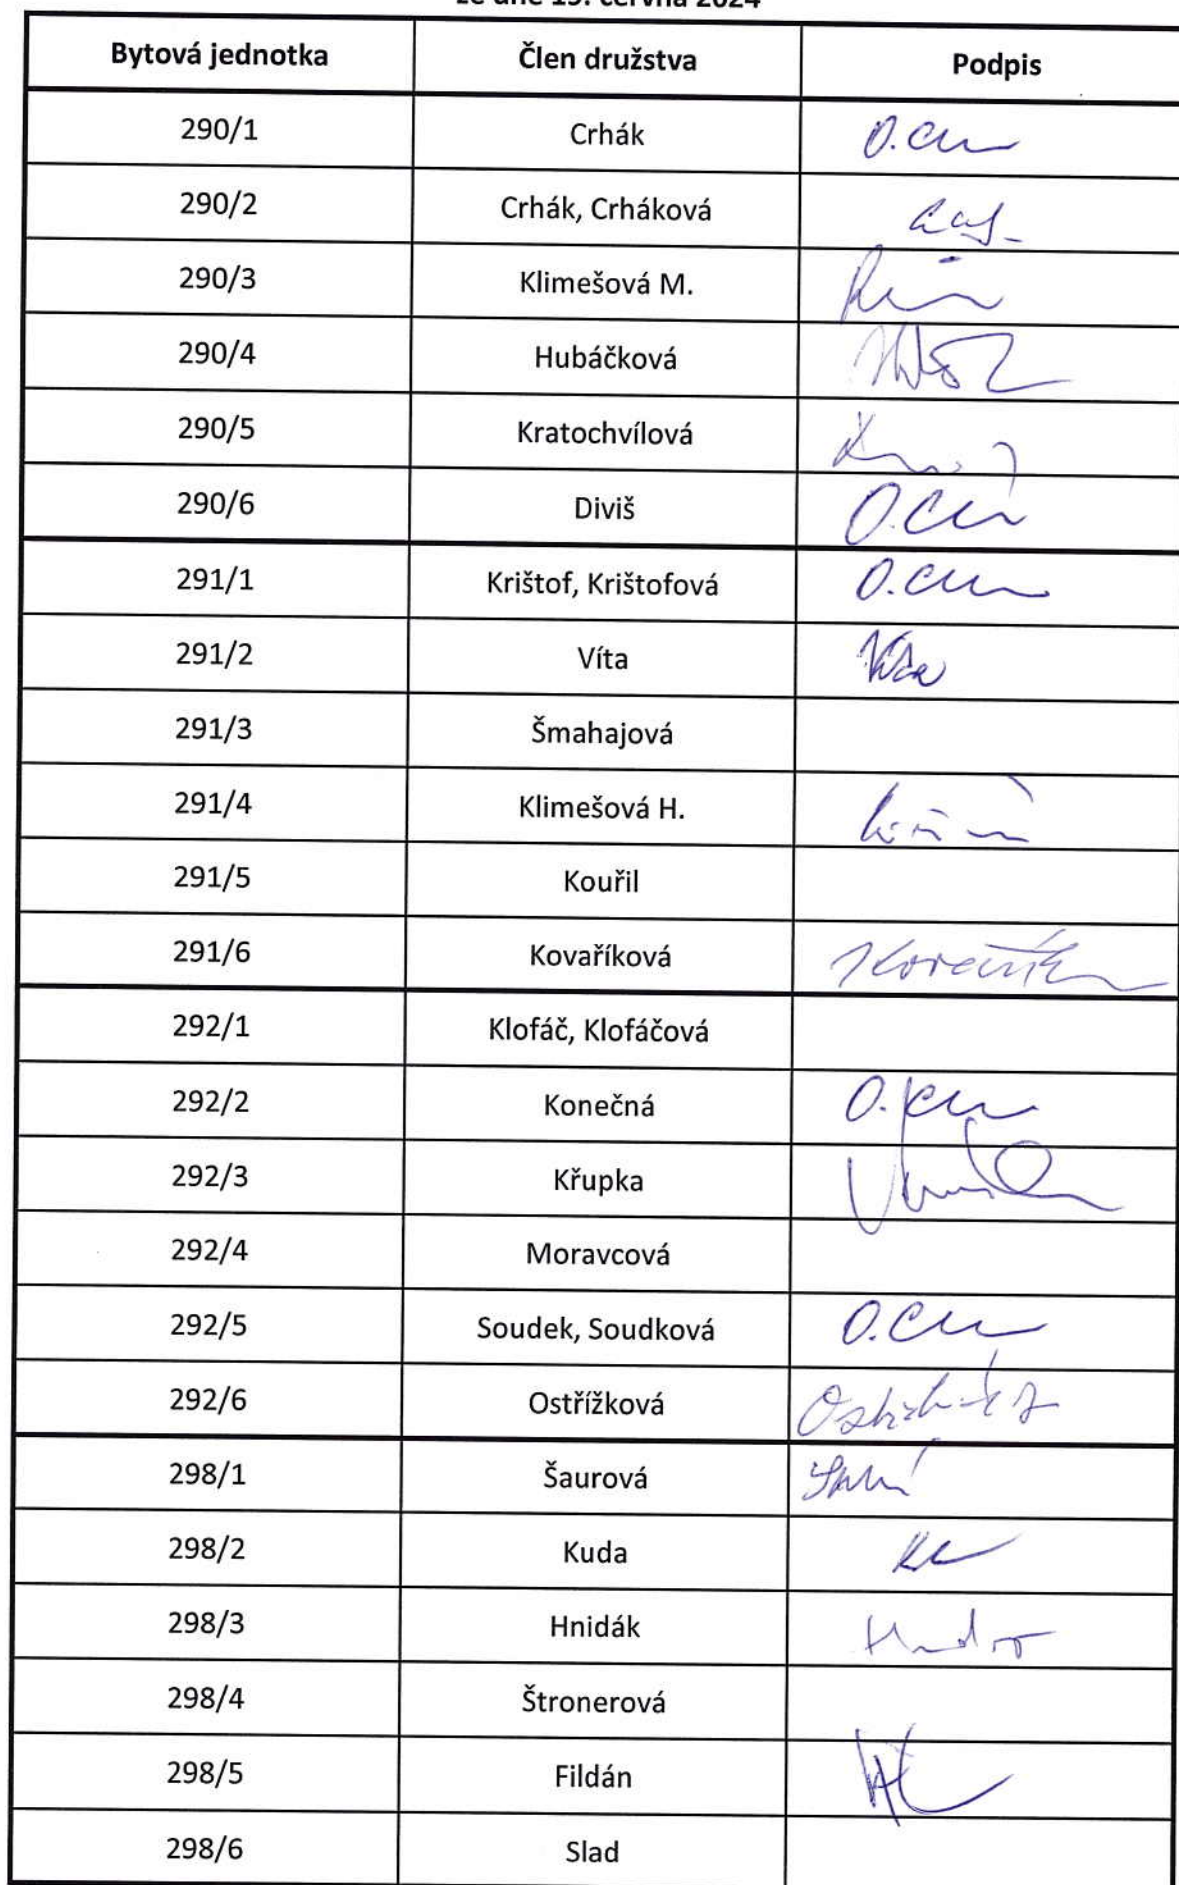 ze dne 19. června 2024
Bytová jednotka Člen družstva Podpis
290/1 Crhák
290/2 Crhák, Crháková
290/3 Klimešová M.
290/4 Hubáčková
290/5 Kratochvílová
290/6 Diviš
291/1 Krištof, Krištofová
291/2 Víta
291/3 Šmahajová
291/4 Klimešová H.
291/5 Kouřil
291/6 Kovaříková
292/1 Klofáč, Klofáčová
292/2 Konečná
292/3 Křupka
292/4 Moravcová
292/5 Soudek, Soudková
292/6 Ostřížková
298/1 Šaurová
298/2 Kuda
298/3 Hnidák
298/4 Štronerová
298/5 Fildán
298/6 Slad